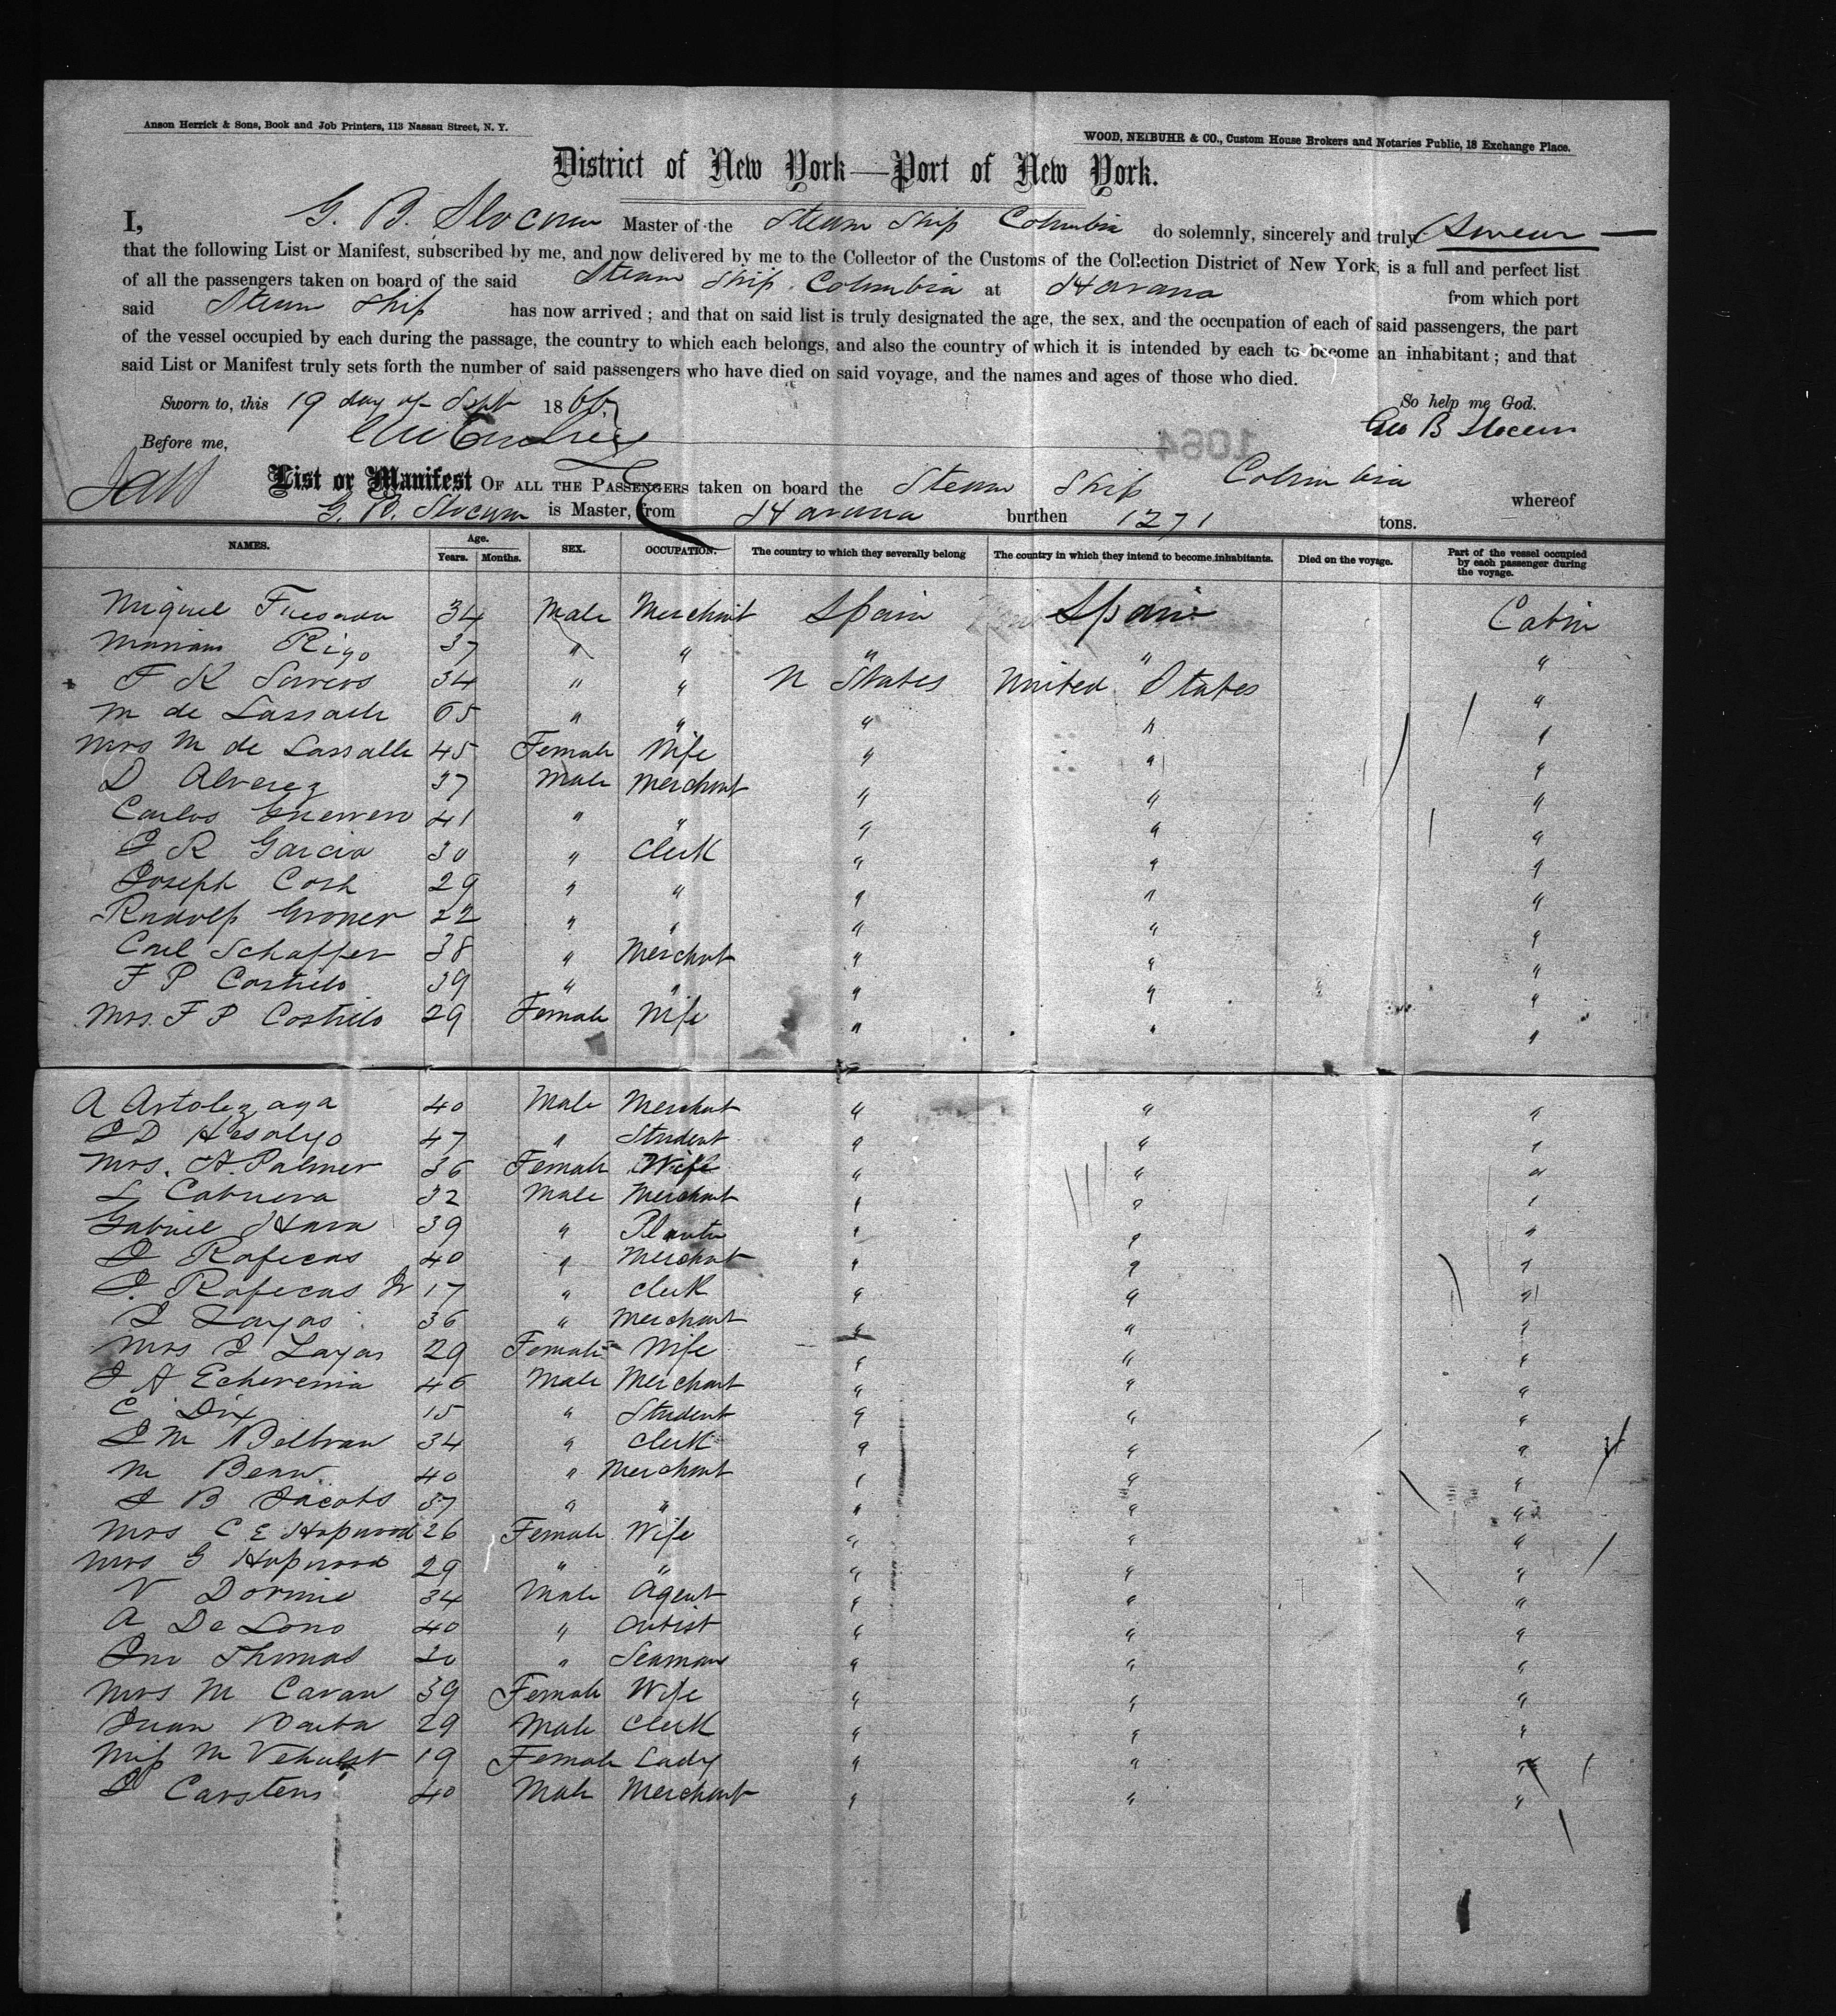 Anson Herrick & Sons, Book and Job Printers, 113 Nassau Street, N. Y.
WOOD, NEIBUHR & CO., Custom House Brokers and Notaries Public, 18 Exchange Place.
District of New York—Port of New York.
I, G. B. Slocum Master of the Steam Ship Columbia do solemnly, sincerely and truly Swear
that the following List or Manifest, subscribed by me, and now delivered by me to the Collector of the Customs of the Collection District of New York, is a full and perfect list
of all the passengers taken on board of the said Steam Ship Columbia at Havana from which port
said Steam Ship has now arrived; and that on said list is truly designated the age, the sex, and the occupation of each of said passengers, the part
of the vessel occupied by each during the passage, the country to which each belongs, and also the country of which it is intended by each to become an inhabitant; and that
said List or Manifest truly sets forth the number of said passengers who have died on said voyage, and the names and ages of those who died.
Sworn to, this 19 day of Sept 1866 So help me God.
Before me, Geo B Slocum
1064
List or Manifest OF ALL THE PASSENGERS taken on board the Steam Ship Columbia whereof
G. B. Slocum is Master, from Havana burthen 1271 tons.
NAMES. Age. Years. Months. SEX. OCCUPATION. The country to which they severally belong The country in which they intend to become inhabitants. Died on the voyage. Part of the vessel occupied by each passenger during the voyage.
Miquel 34 Male Merchant Spain Spain Cabin
Rigo 37 " " " " "
F K 34 " " U States United States "
M de Lassalle 65 " " " " "
Mrs M de Lassalle 45 Female Wife " " "
D Alverez 37 Male Merchant " " "
Carlos Guerrero 41 " " " " "
J R Garcia 30 " Clerk " " "
Joseph Cosh 29 " " " " "
Rudolf Groner 22 " " " " "
Carl Schaffer 38 " Merchant " " "
F P Costillo 39 " " " " "
Mrs. F P Costillo 29 Female Wife " " "
A Artolezaga 40 Male Merchant " " "
J D 47 " Student " " "
Mrs. A. Palmer 36 Female Wife " " "
L Cabrera 32 Male Merchant " " "
Gabriel Hara 39 " Planter " " "
J Rafecas 40 " Merchant " " "
J. Rafecas Jr 17 " Clerk " " "
J Layas 36 " Merchant " " "
Mrs J Layas 29 Female Wife " " "
J A Echeverria 46 Male Merchant " " "
C Dix 15 " Student " " "
J M Beltran 34 " Clerk " " "
M Bean 40 " Merchant " " "
J B Jacobs 37 " " " " "
Mrs C E Hopwood 26 Female Wife " " "
Mrs G Hopwood 29 " " " " "
V 34 Male Agent " " "
A De Lono 40 " Artist " " "
Jno Thomas 20 " Seaman " " "
Mrs M Cavan 39 Female Wife " " "
Juan Barba 29 Male Clerk " " "
Miss M Vehulst 19 Female Lady " " "
J Carstens 40 Male Merchant " " "